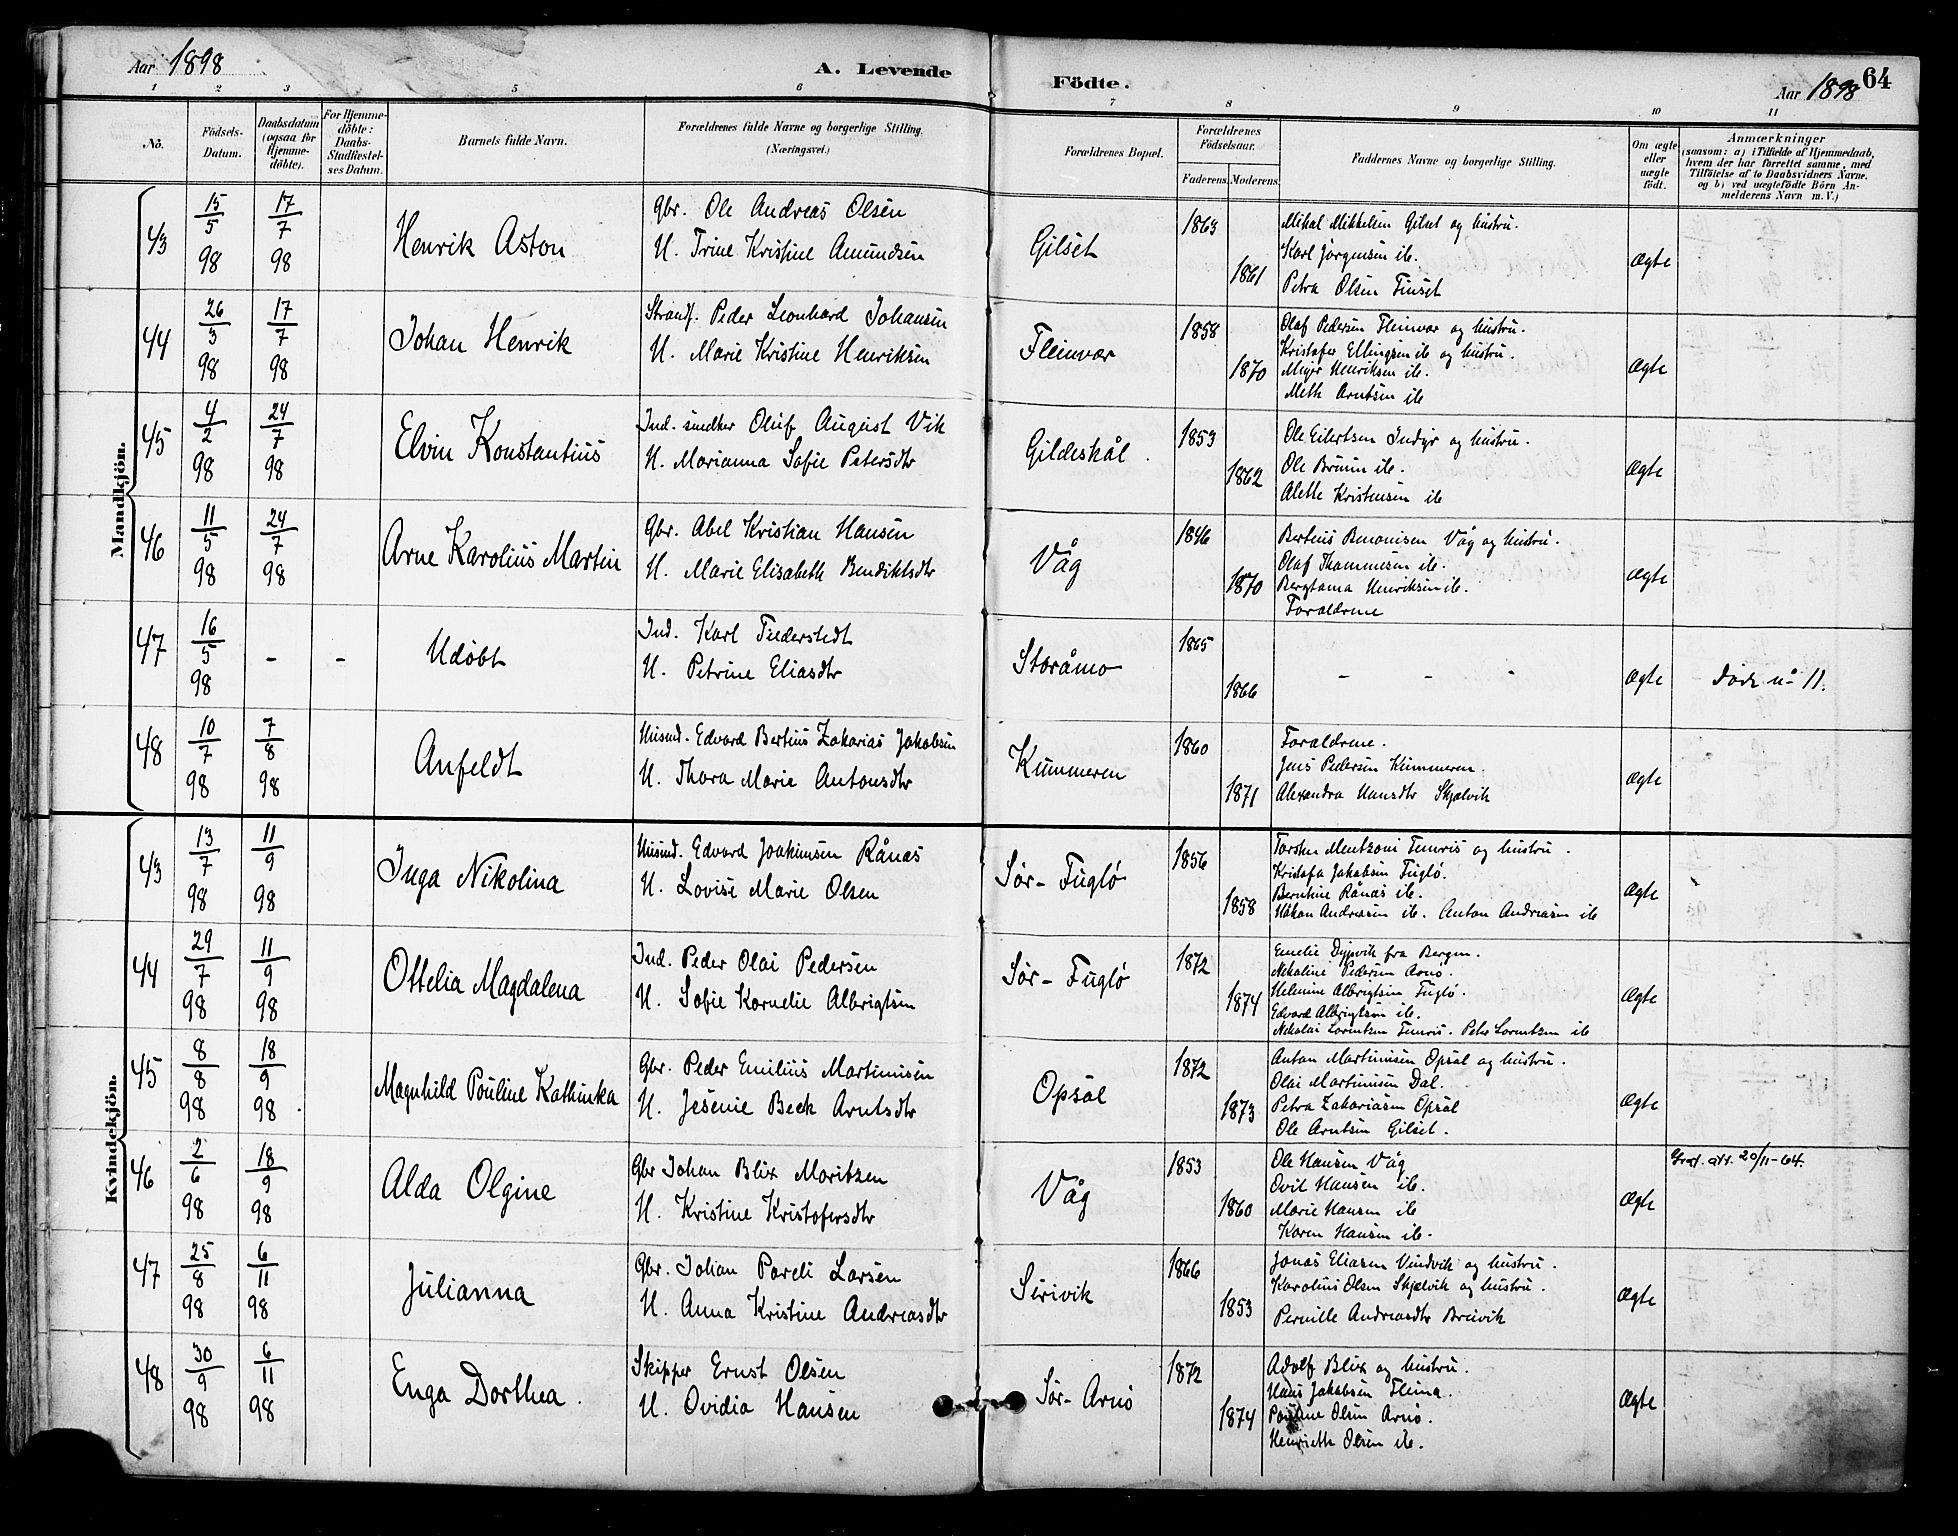 Aar 1898
A. Levende
Födte.
Aar 1898
64
1 2 3 5 6 7 8 9 10 11
No.
Födsels-
Datum.
Daabsdatum
(ogsaa for
Hjemme-
döbte).
For Hjemme-
döbte:
Daabs-
Stadfæstel-
ses Datum.
Barnets fulde Navn.
Forældrenes fulde Navne og borgerlige Stilling.
(Næringsvei.)
Forældrenes Bopæl.
Forældrenes
Födselsaar.
Faderens. Moderens.
Faddernes Navne og borgerlige Stilling.
Om ægte
eller
uægte
födt.
Anmærkninger
(saasom: a) i Tilfælde af Hjemmedaab,
hvem der har forrettet samme, med
Tilföielse af to Daabsvidners Navne.
og b) ved uægtefödte Börn An-
melderens Navn m. V.)
Mandkjön.
43
15/5 98
17/7 98
Henrik Aston
Gbr. Ole Andreas Olsen
H. Trine Kristine Amundsen
Gilset
1863
1861
Mikal Mikkelsen Gilset og hustru.
Karl Jørgensen ib.
Petra Olsen Finset
Ægte
44
26/3 98
17/7 98
Johan Henrik
Strands. Peder Leonhard Johansen
H. Marie Kristine Henriksen
Fleinvær
1858
1870
Olaf Pedersen Fleinvær og hustru.
Kristofer Ellingsen ib og hustru.
Meyer Henriksen ib.
Meth Arntsen ib
Ægte
45
4/2 98
24/7 98
Elvin Konstantius
Ind. snedker Oluf August Vik
H. Marianna Sofie Petersdtr
Gildeskål.
1853
1862
Ole Eilertsen Indyr og hustru.
Ole Bruun ib.
Alette Kristensen ib
Ægte
46
11/5 98
24/7 98
Arne Karolius Martin
Gbr. Abel Kristian Hansen
H. Marie Elisabeth Bendiktsdtr
Våg
1846
1870
Bertius Benonisen Våg og hustru.
Olaf Thommesen ib.
Bergtama Henriksen ib.
Forældrene
Ægte
47
16/5 98
- -
Udøbt
Ind. Karl Fuderstedt
H. Petrine Eliasdtr
Storåmo
1865
1866
- - -
Ægte
døde no 11.
48
10/7 98
7/8 98
Anfeldt
Husmd. Edvard Bertius Zakarias Jakobsen
H. Thora Marie Antonsdtr
Kummeren
1860
1871
Forældrene.
Jens Pedersen Kummeren.
Alexandra Hansdtr Skjælvik
Ægte
Kvindekjön.
43
13/7 98
11/9 98
Inga Nikolina
Husmd. Edvard Joakimsen Rånas
H. Lovise Marie Olsen
Sør-Fuglø
1856
1858
Torsten Mentzoni Femris og hustru.
Kristofa Jakobsen Fuglø.
Berntine Rånas ib.
Håkon Andreasen ib. Anton Andreasen ib
Ægte
44
29/7 98
11/9 98
Ottelia Magdalena
Ind. Peder Olai Pedersen
H. Sofie Kornelie Albrigtsen
Sør-Fuglø
1872
1874
Emelie Dypvik fra Bergen.
Nikoline Pedersen Arnø.
Helmine Albrigtsen Fuglø.
Edvard Albrigtsen ib.
Nikolai Lorentsen Femris. Peter Lorentsen ib
Ægte
45
8/8 98
18/9 98.
Magnhild Pouline Kathinka
Gbr. Peder Emilius Martinusen
H. Jesenie Beck Arntsdtr
Opsal
1872
1873
Anton Martinusen Opsal og hustru.
Olai Martinusen Dal.
Petra Zakariasen Opsal
Ole Arntsen Gilset.
Ægte
46
2/6 98
18/9 98
Alda Olgine
Gbr Johan Blix Moritzen
H. Kristine Kristofersdtr
Våg
1853
1860
Ole Hansen Våg
Ovil Hansen ib.
Marie Hansen ib
Karen Hansen ib.
Ægte
Graf. att. 20/11-64.
47
25/8 98
6/11 98
Julianna
Gbr. Johan Pareli Larsen
H. Anna Kristine Andreasdtr
Sørivik
1866
1853
Jonas Eliasen Vindvik og hustru.
Karolius Olsen Skjælvik og hustru.
Pernille Andreasdtr Breivik
Ægte
48
30/9 98
6/11 98
Enga Dorthea.
Skipper Ernst Olsen
H. Ovidia Hansen
Sør-Arnø
1872
1874
Adolf Blix og hustru.
Hans Jakobsen Fleina.
Pouline Olsen Arnø.
Henriette Olsen ib.
Ægte